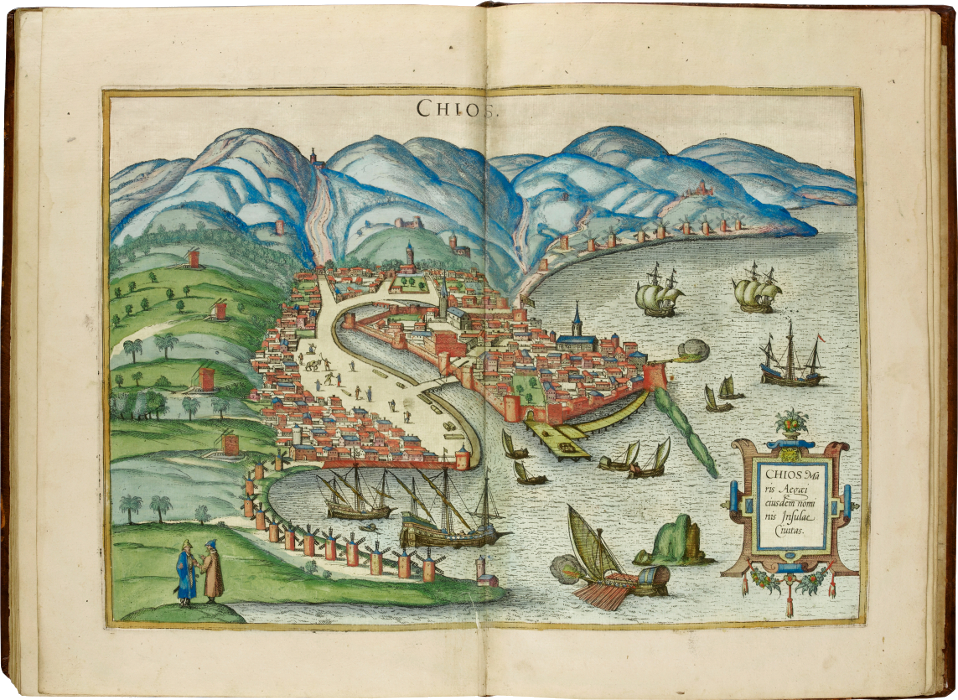 CHIOS.
CHIOS Ma
ris Aegæi
eiusdem nomi
nis Insulae
Ciuitas.